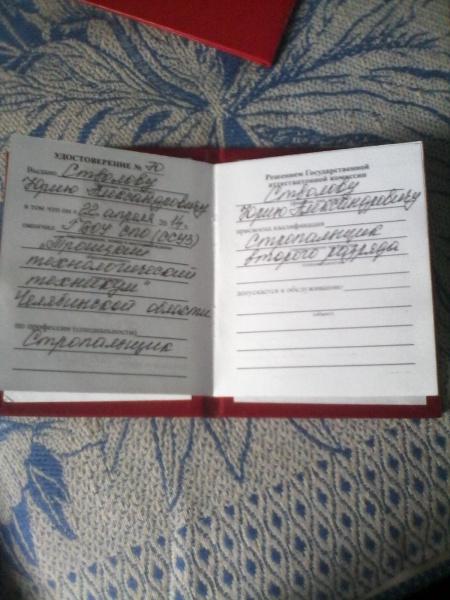 УДОСТОВЕРЕНИЕ № 70
Выдано Стволову
Юрию Александровичу
в том что он с 22 апреля 2014 г.
окончил ГБОУ СПО (ССУЗ)
"Троицкий
технологический
техникум"
Челябинской области
по профессии (специальности)
Стропальщик
Решением Государственной
аттестатационной комиссии
Стволову
Юрию Александровичу
присвоена квалификация
Стропальщик
второго разряда
допускается к обслуживанию